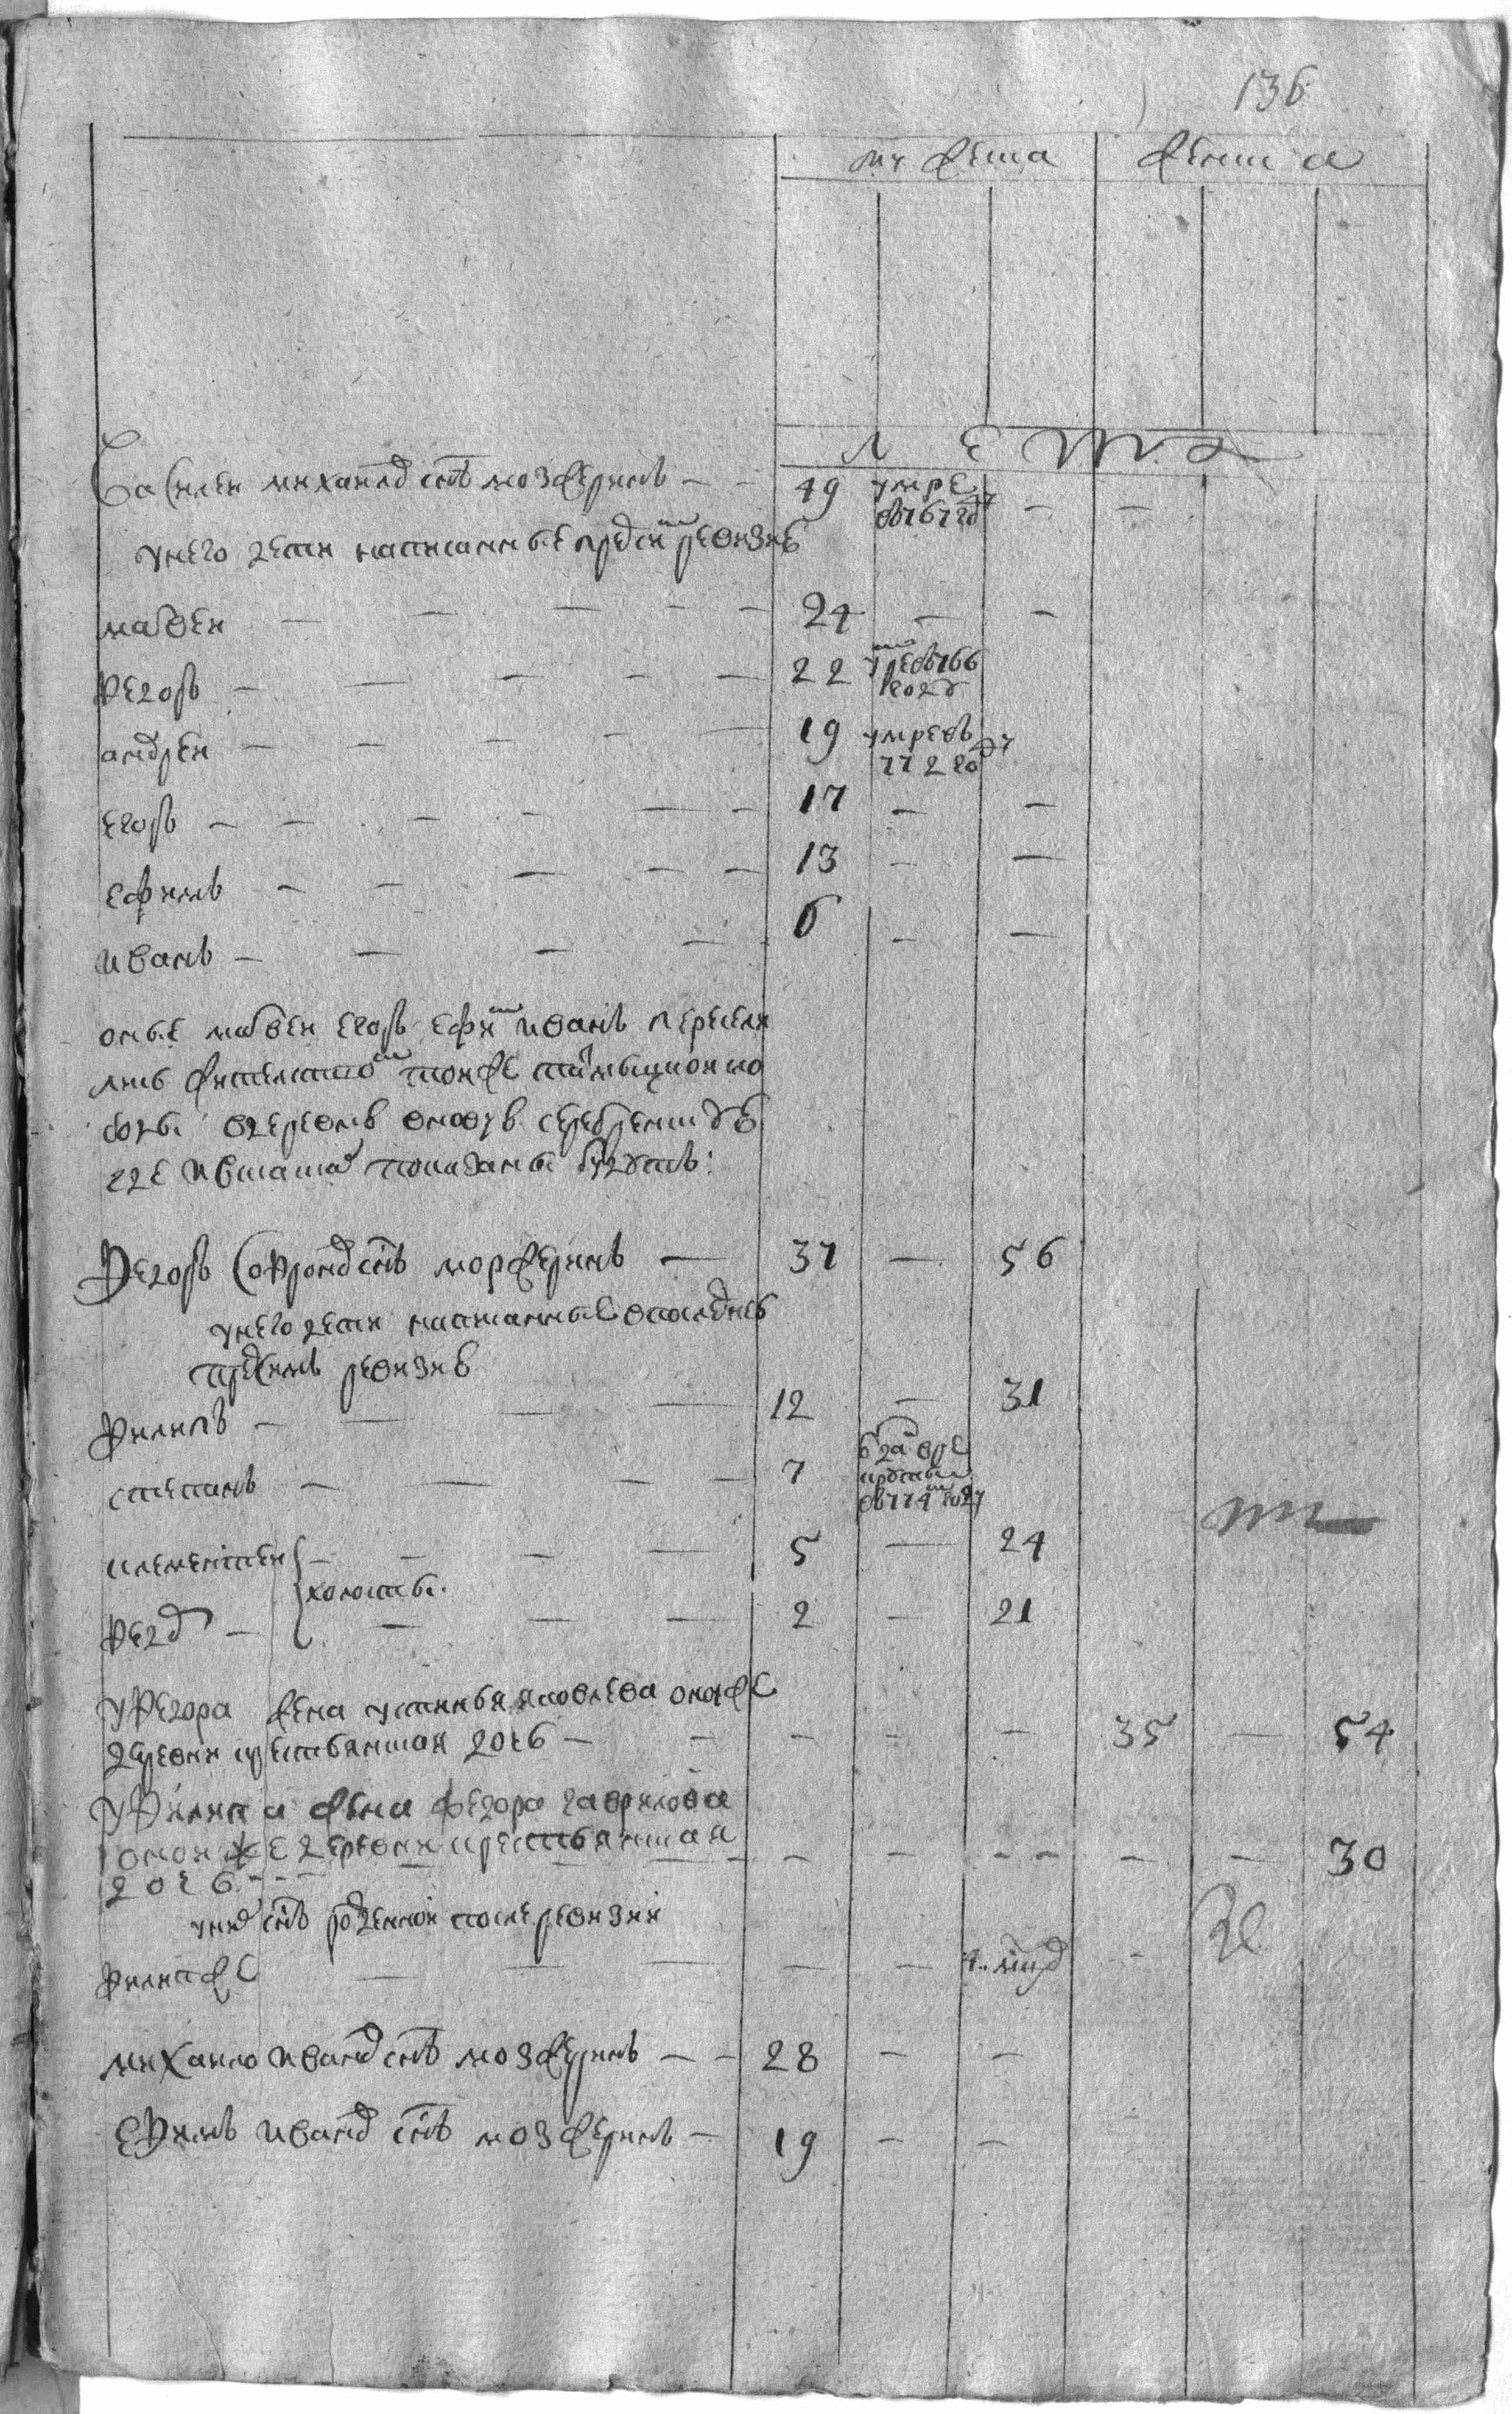 136
мужеска женска
лета
Василей михайловъ снъ мозжеринъ — — 49 умре въ 1767 году — —
у него дети написанные пред сим ревизиѣ
матвей — — — — — 24 — —
Федоръ — — — — — 22 умре въ 1766 году
андрей — — — — — 19 умре въ 772 году
егоръ — — — — — — 17 — —
ефимъ — — — — — 13 — —
иванъ — — — — 6 — —
оные матвей егоръ ефим иванъ переселя
лись жительством той же
вдеревнѣ
где и показаны будутъ:
Федоръ Софронов снъ мозжеринъ — 37 — 56
у него дети написанные в последнеѣ
пред симъ ревизиѣ
Филипъ — — — — 12 — 31
степанъ — — — — 7 взят в рекруты въ 774 году
клементей — — — — 5 — 24
холосты
Федот — — — — 2 — 21
у Федора жена устинья яковлева оной же
деревни крестьянская дочь — — — — — 35 — 54
у Филипа жена федора гаврилова
оной же деревни крестьянская
дочь — — — — — — — — — — 30
у них снъ рожденной после ревизии
Филип же — — — — — 4. мѣсяц —
михайло иванов снъ мозжеринъ — — 28 — —
Ефимъ иванов снъ мозжеринъ — 19 — —